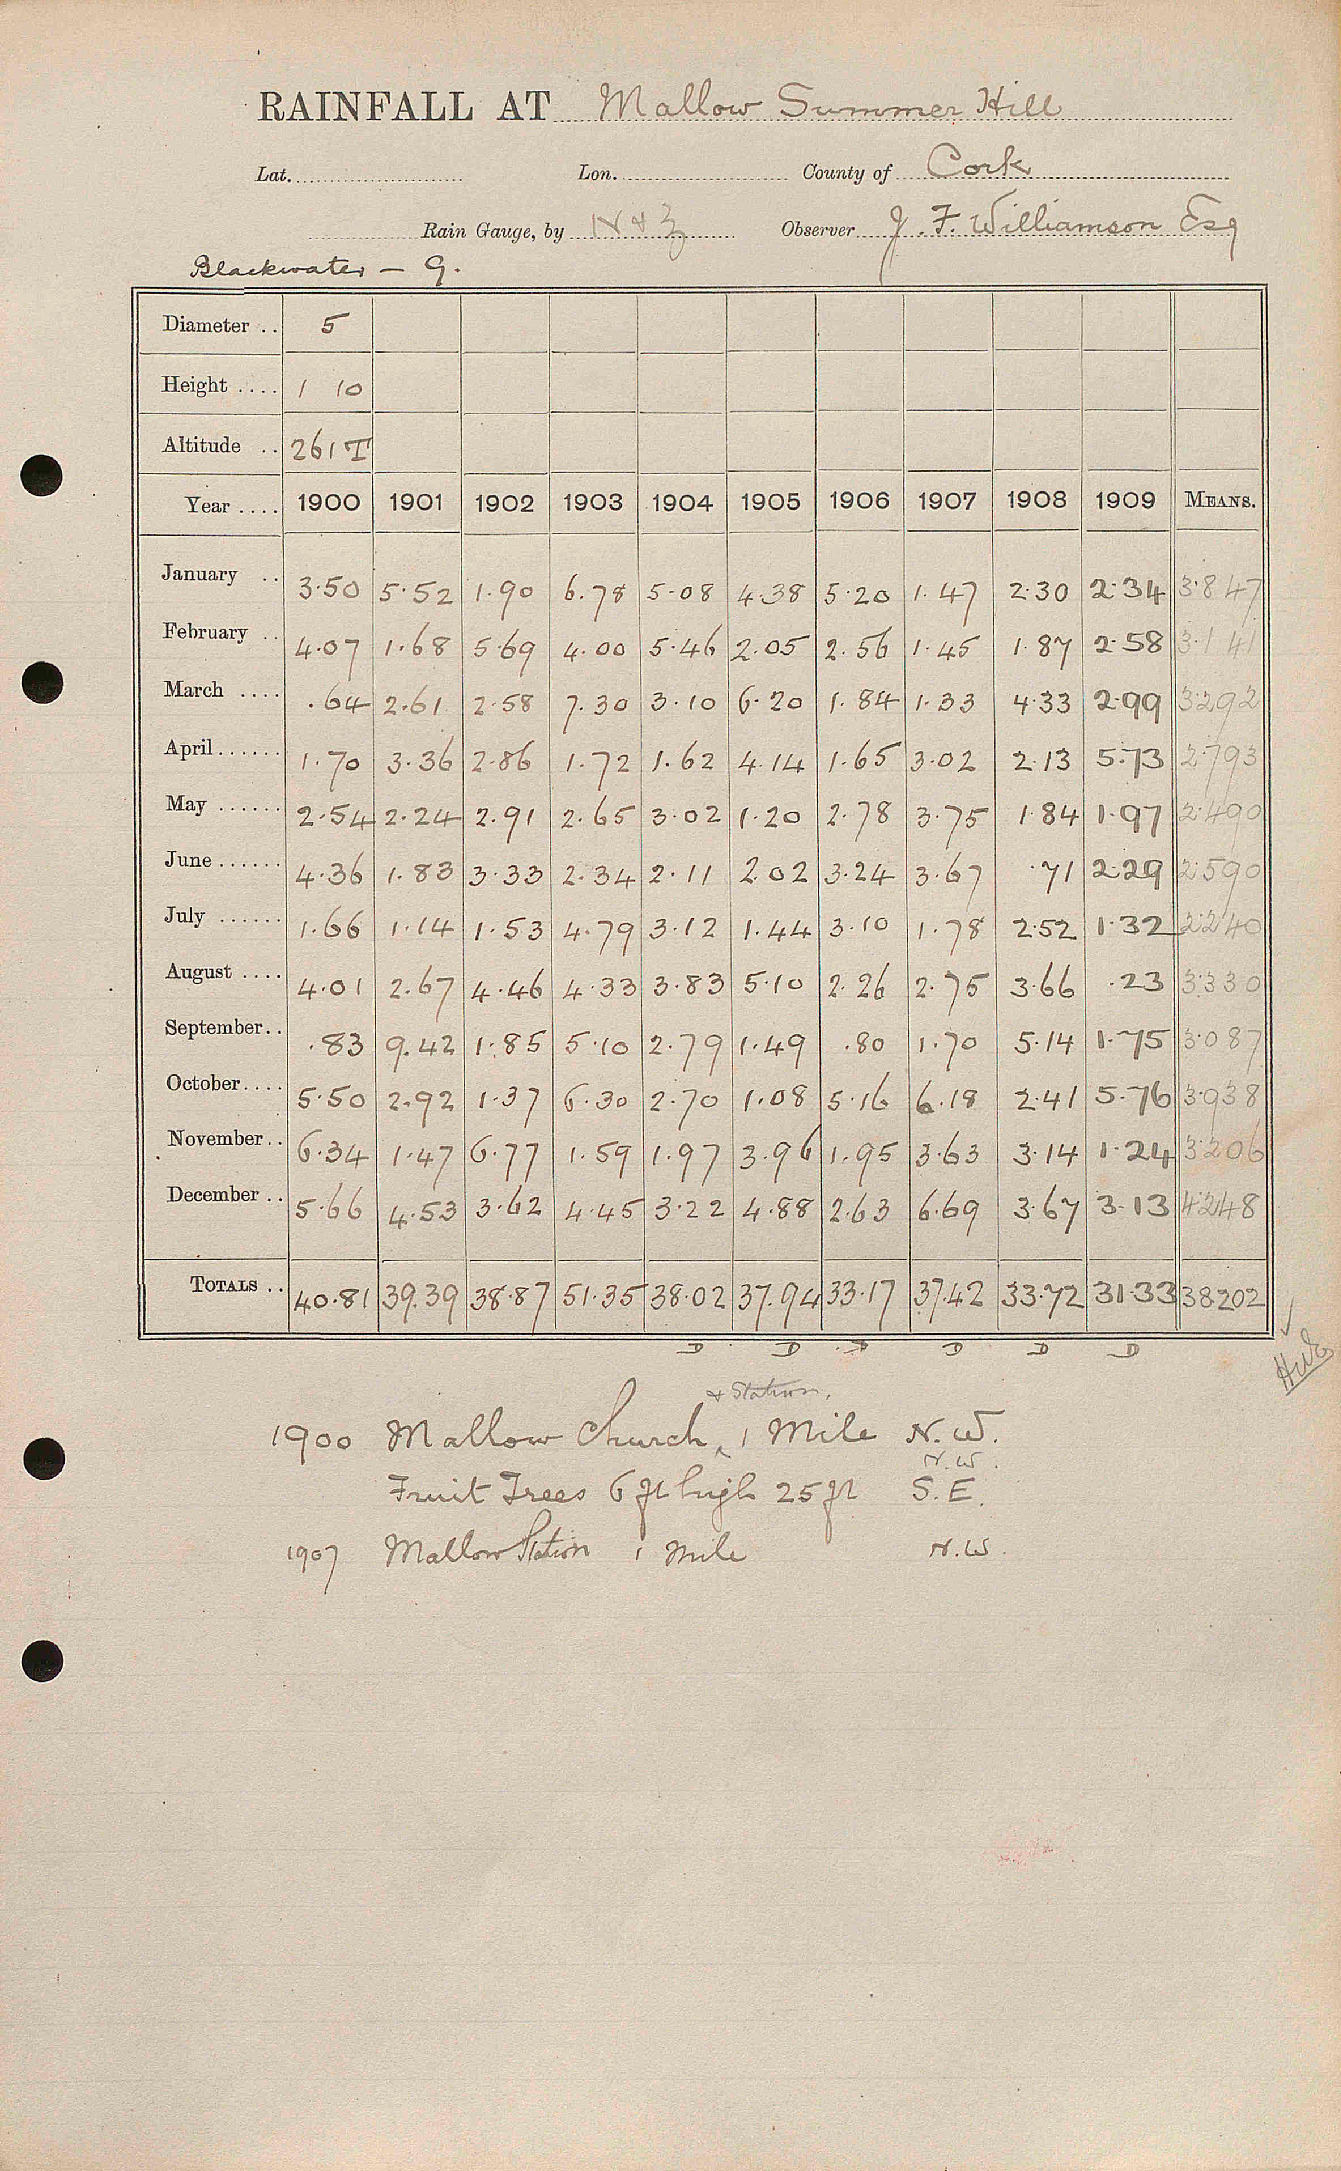 RAINFALL AT Mallow Summer Hill
Lat. Lon. County of Cork
Rain Gauge, by N & Z Observer J. F. Williamson Esq
Blackwater – G.
Diameter .. 5
Height .... 1 10
Altitude .. 261 T
Year .... 1900 1901 1902 1903 1904 1905 1906 1907 1908 1909 MEANS.
January .. 3.50 5.52 1.90 6.78 5.08 4.38 5.20 1.47 2.30 2.34 3.847
February .. 4.07 1.68 5.69 4.00 5.46 2.05 2.56 1.45 1.87 2.58 3.141
March .... .64 2.61 2.58 7.30 3.10 6.20 1.84 1.33 4.33 2.99 3.292
April ...... 1.70 3.36 2.86 1.72 1.62 4.14 1.65 3.02 2.13 5.73 2.793
May ...... 2.54 2.24 2.91 2.65 3.02 1.20 2.78 3.75 1.84 1.97 2.490
June ...... 4.36 1.83 3.33 2.34 2.11 2.02 3.24 3.67 .71 2.29 2.590
July ...... 1.66 1.14 1.53 4.79 3.12 1.44 3.10 1.78 2.52 1.32 2.240
August .... 4.01 2.67 4.46 4.33 3.83 5.10 2.26 2.75 3.66 .23 3.330
September .. .83 9.42 1.85 5.10 2.79 1.49 .80 1.70 5.14 1.75 3.087
October .... 5.50 2.92 1.37 6.30 2.70 1.08 5.16 6.18 2.41 5.76 3.938
November .. 6.34 1.47 6.77 1.59 1.97 3.96 1.95 3.63 3.14 1.24 3.206
December .. 5.66 4.53 3.62 4.45 3.22 4.88 2.63 6.69 3.67 3.13 4.248
TOTALS .. 40.81 39.39 38.87 51.35 38.02 37.94 33.17 37.42 33.72 31.33 38.202
D D D D D
& Station.
1900 Mallow Church 1 Mile N.W.
N.W.
Fruit Trees 6 ft high 25 ft S.E.
1907 Mallow Station 1 mile N.W.